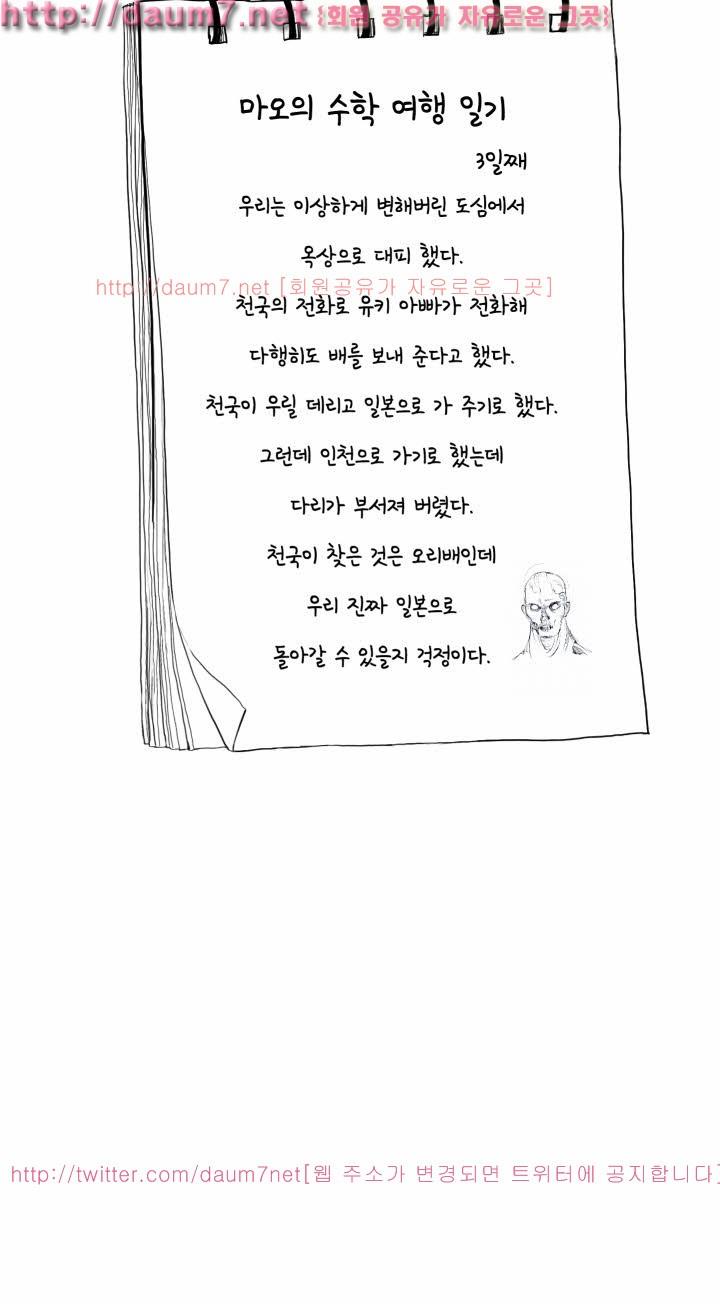 http://daum7.net {회원 공유가 자유로운 그곳}
마오의 수학 여행 일기
3일째
우리는 이상하게 변해버린 도심에서
옥상으로 대피 했다.
http://daum7.net [회원공유가 자유로운 그곳]
천국의 전화로 유키 아빠가 전화해
다행히도 배를 보내 준다고 했다.
천국이 우릴 데리고 일본으로 가 주기로 했다.
그런데 인천으로 가기로 했는데
다리가 부서져 버렸다.
천국이 찾은 것은 오리배인데
우리 진짜 일본으로
돌아갈 수 있을지 걱정이다.
http://twitter.com/daum7net[웹 주소가 변경되면 트위터에 공지합니다]